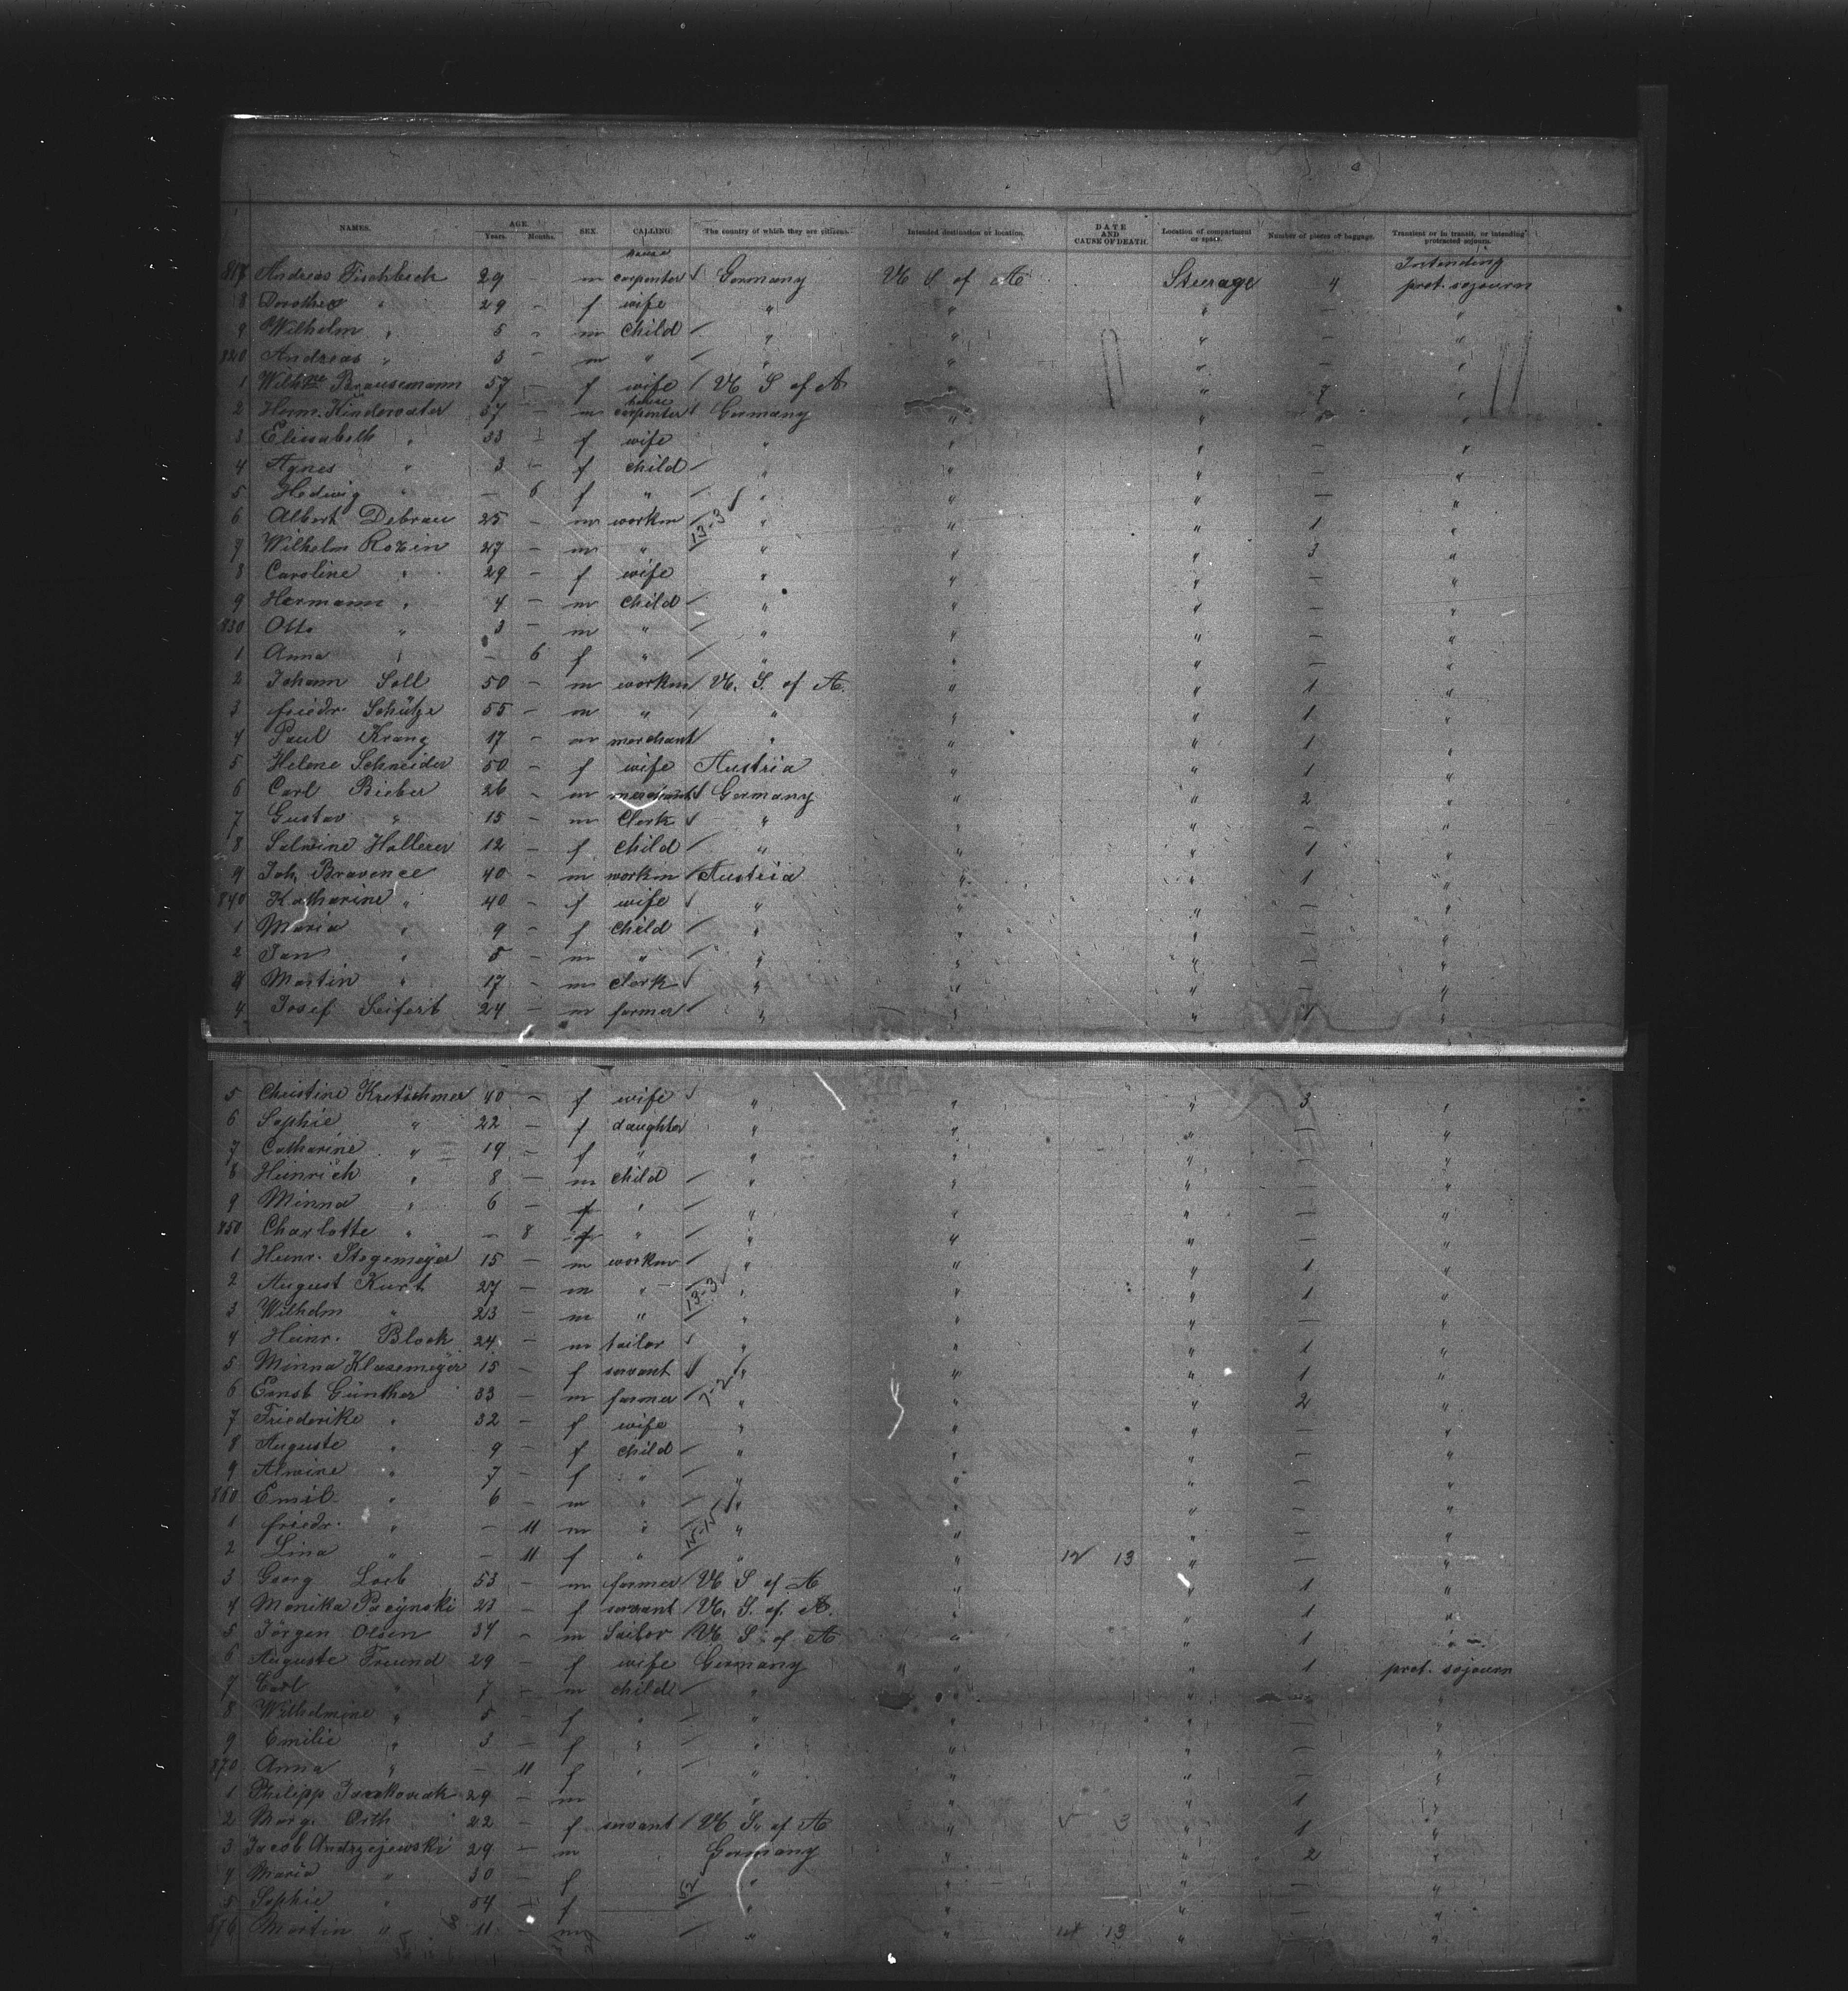 NAMES. AGE. Years. Months. SEX. CALLING. The country of which they are citizens. Intended destination or location. DATE AND CAUSE OF DEATH. Location of compartment or space. Number of pieces of baggage. Transient or in transit, or intending protracted sojourn.
817 Andreas Fischbach 29 - m house carpenter Germany U S of A Steerage 4 Intending prot. sojourn
8 Dorothea " 29 - f wife " " " - "
9 Wilhelm " 5 - m child " " " - "
820 Andreas " 3 - m " " " " - "
1 Wilhne Brausemann 57 - f wife U S of A " " 7 "
2 Herm. Kindervater 37 - m house carpenter Germany " " "
3 Elisabeth " 33 - f wife " " " - "
4 Agnes " 3 - f child " " " - "
5 Hedwig " - 6 f " " " " - "
6 Albert Debrau 25 - m workm 13-3 " " " 1 "
7 Wilhelm Rozin 27 - m " " " " 3 "
8 Caroline " 29 - f wife " " " - "
9 Hermann " 4 - m child " " " - "
830 Otto " 3 - m " " " " - "
1 Anna " - 6 f " " " " - "
2 Johann Soll 50 - m workm U. S. of A. " " 1 "
3 Friedr. Schütze 55 - m " " " " 1 "
4 Paul Krang 17 - m merchant " " " 1 "
5 Helene Schneider 50 - f wife Austria " " 1 "
6 Carl Bieber 26 - m merchant Germany " " 2 "
7 Gustav " 15 - m Clerk " " " - "
8 Selwine Hallerer 12 - f child " " " 1 "
9 Joh. Bravence 40 - m workm Austria " " 1 "
840 Katharine " 40 - f wife " " " - "
1 Maria " 9 - f child " " " - "
2 Jan " 5 - m " " " " - "
3 Martin " 17 - m clerk " " " - "
4 Josef Seifert 24 - m farmer " " " 1 "
5 Christine Kretschmer 40 - f wife " " " 3 "
6 Sophie " 22 - f daughter " " " - "
7 Catharine " 19 - f " " " " - "
8 Heinrich " 8 - m child " " " - "
9 Minna " 6 - f " " " " - "
850 Charlotte " - 8 f " " " " - "
1 Heinr. Stegemeyer 15 - m workm " " " 1 "
2 August Kurt 27 - m " 13-3 " " " 1 "
3 Wilhelm " 23 - m " " " " - "
4 Heinr. Block 24 - m tailor " " " 1 "
5 Minna Klasemeyer 15 - f servant " " " 1 "
6 Ernst Günther 33 - m farmer 7-2 " " " 2 "
7 Friederike " 32 - f wife " " " - "
8 Auguste " 9 - f child " " " - "
9 Alwine " 7 - f " " " " - "
860 Emil " 6 - m " " " " - "
1 Friedr. " - 11 m " 15-15 " " " - "
2 Lina " - 11 f " " " 12 13 " - "
3 Georg Loeb 53 - m farmer U S of A " " 1 "
4 Monika Pacynski 23 - f servant U. S. of A. " " 1 "
5 Jörgen Olsen 34 - m Sailor U S of A " " 1 "
6 Auguste Freund 29 - f wife Germany " " 1 prot. sojourn
7 Carl " 7 - m child " " " - "
8 Wilhelmine " 5 - f " " " " - "
9 Emilie " 3 - f " " " " - "
870 Anna " - 11 f " " " " - "
1 Philipp Jankowiak 29 - m " " " 1 "
2 Marg. Orth 22 - f servant U S. of A " 3 " 1 "
3 Jacob Andrzejewski 29 - m Germany " " 2 "
4 Maria " 30 - f " " " - "
5 Sophie " 54 - f 52 " " " - "
876 Martin " 11 - m " " 12 13 " - "